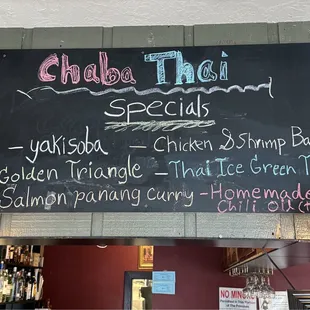 Chaba Thai
Specials
- yakisoba
- Chicken & Shrimp Ba
Golden Triangle
- Thai Ice Green T
Salmon panang curry
- Homemade
Chili Oil
NO MIN